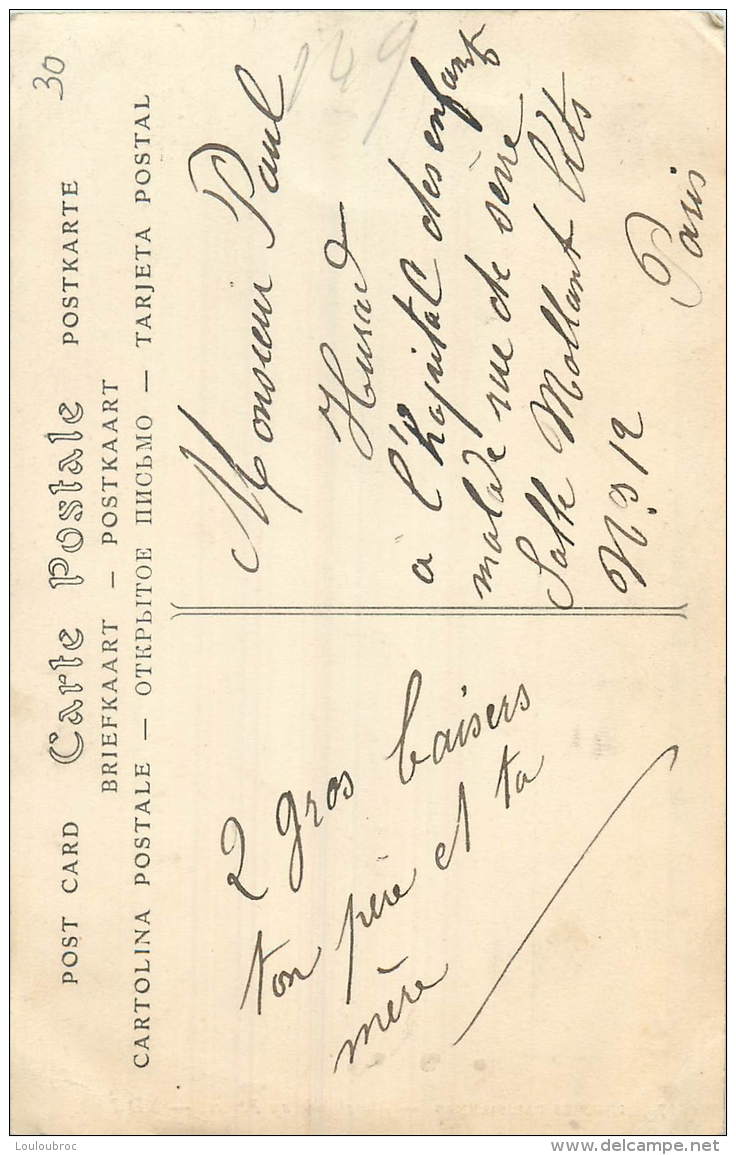 POST CARD Carte Postale POSTKARTE
BRIEFKAART — POSTKAART
CARTOLINA POSTALE — ОТКРЫТОЕ ПИСЬМО — TARJETA POSTAL
30
149
2 gros baisers
ton père et ta
mère
Monsieur Paul
Husard
a l'hopital des enfants
malade rue de sèvre
Salle Mollant lits
N° 12
Paris
Louloubroc
www.delcampe.net